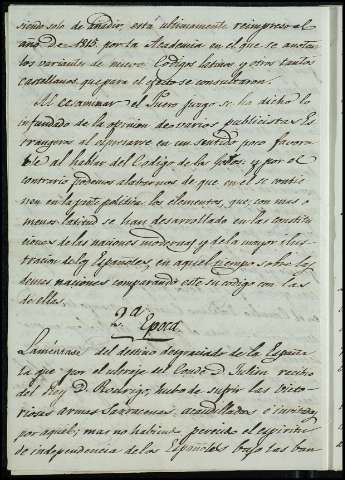 siendo solo de añadir, está ultimamente reimpreso el
año de 1815, por la Academia en el que se anotan
los variants de nueve Codigos latinos y otros tantos
castellanos que para el efecto se consultaron.
Al examinar el Fuero juzgo se ha dicho lo
infundado de la opinion de varios publicistas Es
trangeros al espresarse en un sentido poco favora
ble al hablar del Codigo de los Godos: y por el
contrario podemos alabarnos de que en el se contie
nen en la parte politica los elementos, que, con mas o
menos latitud se han desarrollado en las constitu
ciones de las naciones modernas y de la mayor ilus
tracion de los Españoles, en aquel tiempo sobre las
demas naciones comparando este su codigo con los
de ellas.
2.ª Epoca.
Lamentanse del destino desgraciado de la España
la que por el ultraje del Conde D. Julian recibio
del Rey D. Rodrigo, hubo de sufrir las victo
riosas armas Sarracenas, acaudilladas e
por aquel; mas no habiendo perecido el espiritu
de independencia de los Españoles bajo las ban